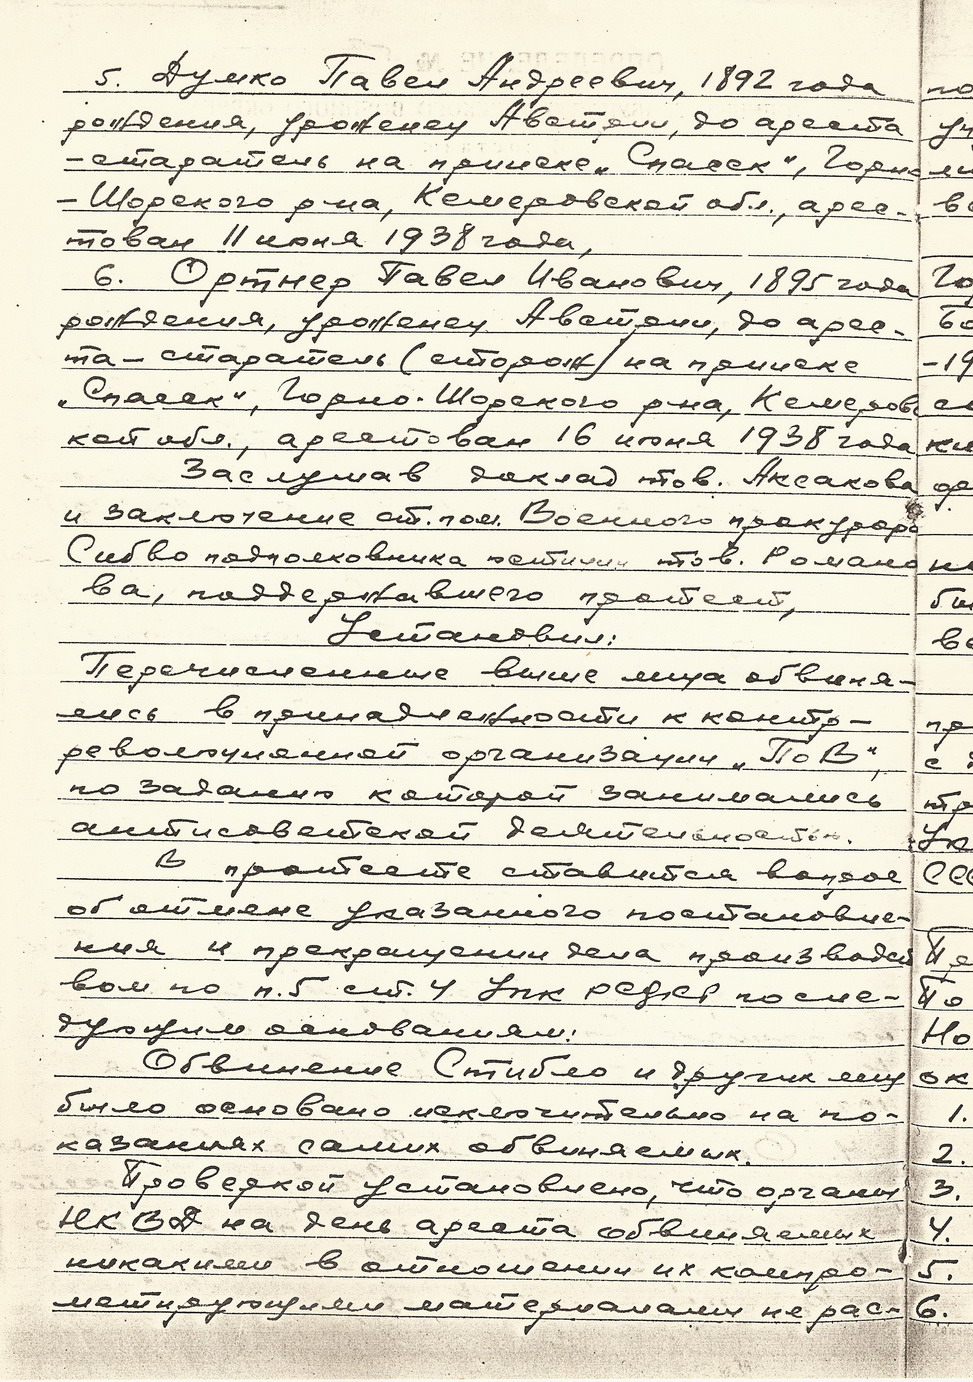 5. Думко Павел Андреевич, 1892 года
рождения, уроженец Австрии, до ареста
- старатель на прииске „Спасск“, Горно
- Шорского р-на, Кемеровской обл., арес-
тован 11 июня 1938 года,
6. Ортнер Павел Иванович, 1895 года
рождения, уроженец Австрии, до арес-
та - старатель (сторож) на прииске
„Спасск“, Горно-Шорского р-на, Кемеровс
кой обл., арестован 16 июня 1938 года
Заслушав доклад тов. Аксакова
и заключение ст. пом. Военного прокурора
СибВО подполковника юстиции тов. Романо
ва, поддержавшего протест,
Установил:
Перечисленные выше лица обвиня-
лись в принадлежности к контр-
революционной организации „ПОВ“,
по заданию которой занимались
антисоветской деятельностью.
В протесте ставится вопрос
об отмене указанного постановле-
ния и прекращении дела производст
вом по п.5 ст.4 УПК РСФСР по сле-
дующим основаниям:
Обвинение Стибло и других лиц
было основано исключительно на по-
казаниях самих обвиняемых.
Проверкой установлено, что органы
НКВД на день ареста обвиняемых
никакими в отношении их компро-
метирующими материалами не рас-
1.
2.
3.
4.
5.
6.